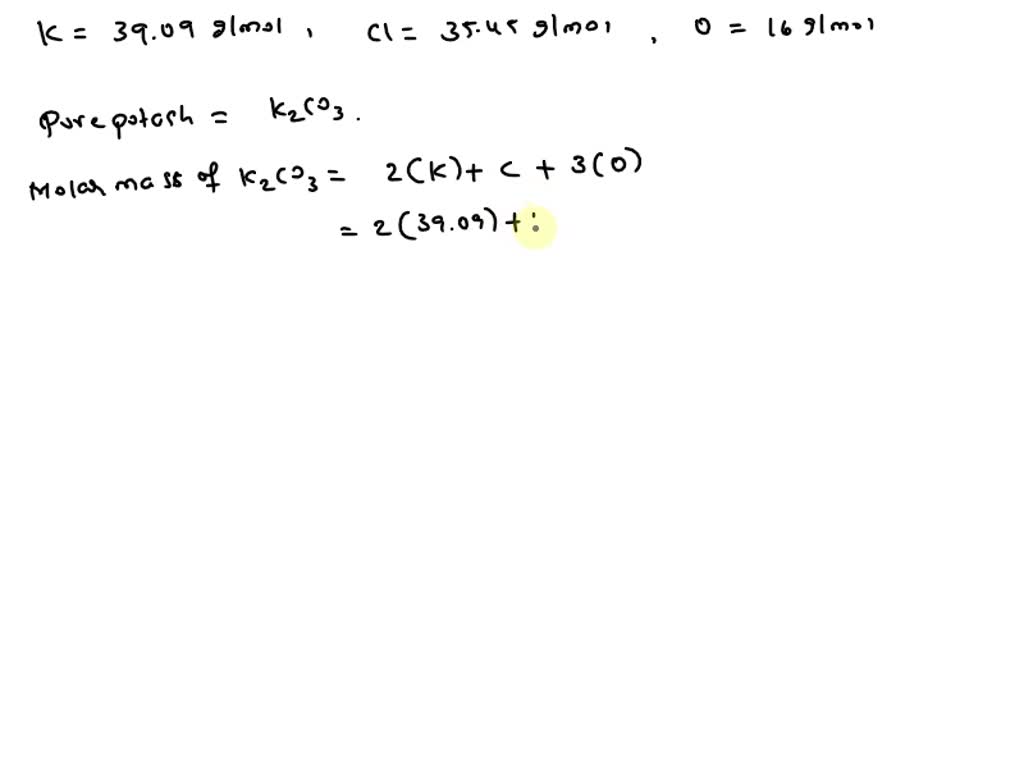 K = 39.09 g/mol , Cl = 35.45 g/mol , O = 16 g/mol
Pure potash = K₂CO₃.
Molar mass of K₂CO₃ = 2(K) + C + 3(O)
= 2(39.09) +